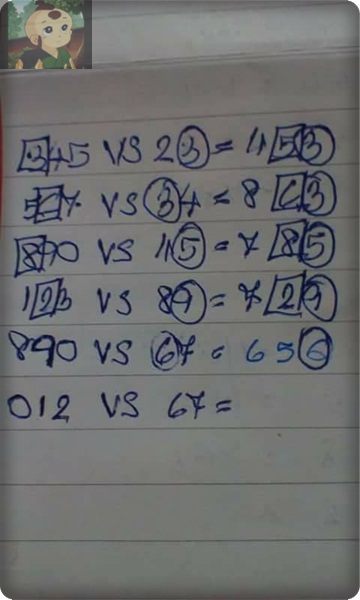 345 VS 23 = 453
567 VS 34 = 863
890 VS 45 = 785
123 VS 89 = 729
890 VS 67 = 656
012 VS 67 =